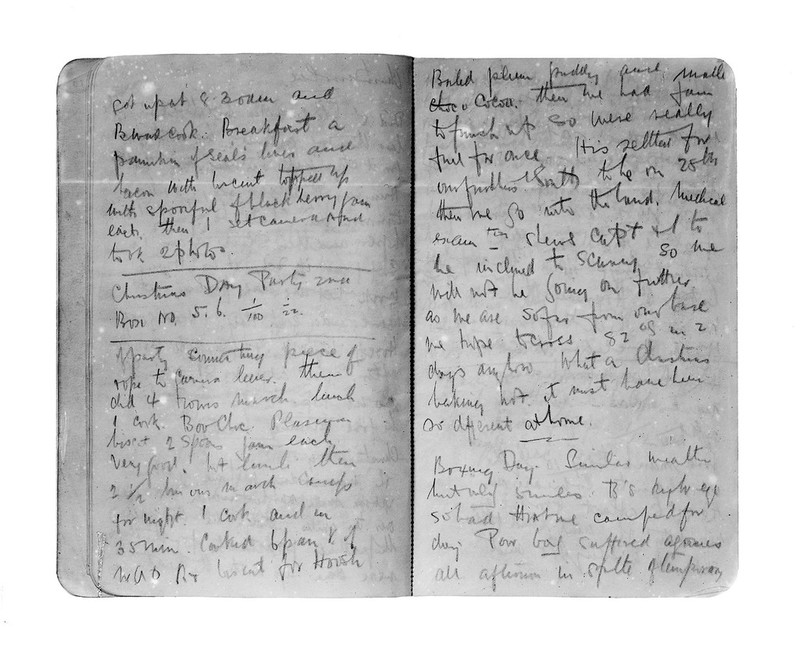 Got up at 8.30 am and
B was cook. Breakfast a
pannikin of seal's liver and
bacon with biscuit topped up
with spoonful of blackberry jam
each. then I set camera &
took 2 photos.
Christmas Day Party
Box No. 5. 6. 1/100 1/22.
of party connecting piece of
rope to camera lever. then
did 4 hours march. lunch
I cook. Bov Choc. Plasmon
bisct 2 spoons jam each
very good. hot lunch then
2 1/2 hours march camp
for night. I cook and in
35 min. cooked 6 pan
biscuit for Hoosh
Boiled plum pudding and made
choc Cocoa. then we had jam
to finish up so were really
full for once. It is settled for
our furthest South to be on 28th
then we go into the land. Medical
exam shews Capt & I to
be inclined to scurvy so we
will not be going on further
as we are so far from our base
we hope to cross 82 S in 2
days anyhow. What a Christmas
baking hot it must have been
so different at home.
Boxing Day. Similar weather
but only smiles. B's right eye
so bad that we camped for
day. Poor boy suffered agonies
all afternoon in spite of